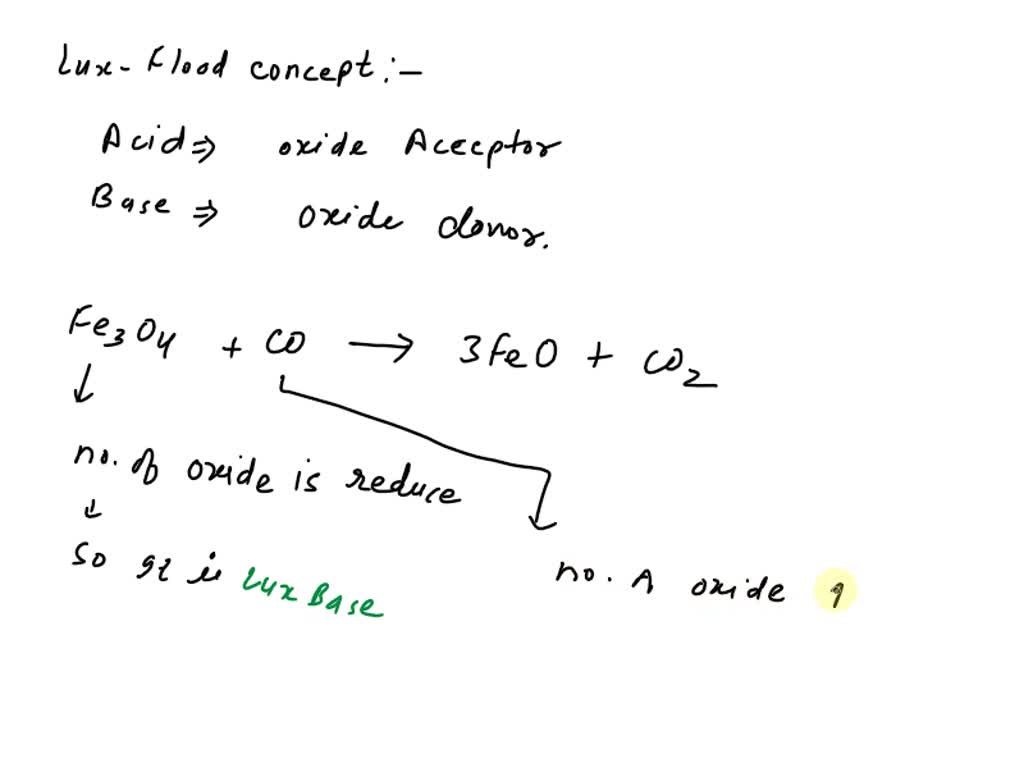 Lux-Flood concept:-
Acid ⇒ oxide Acecptor
Base ⇒ oxide donor.
Fe3O4 + CO → 3FeO + CO2
↓
no. of oxide is reduce
↓
so it is Lux Base
no. of oxide